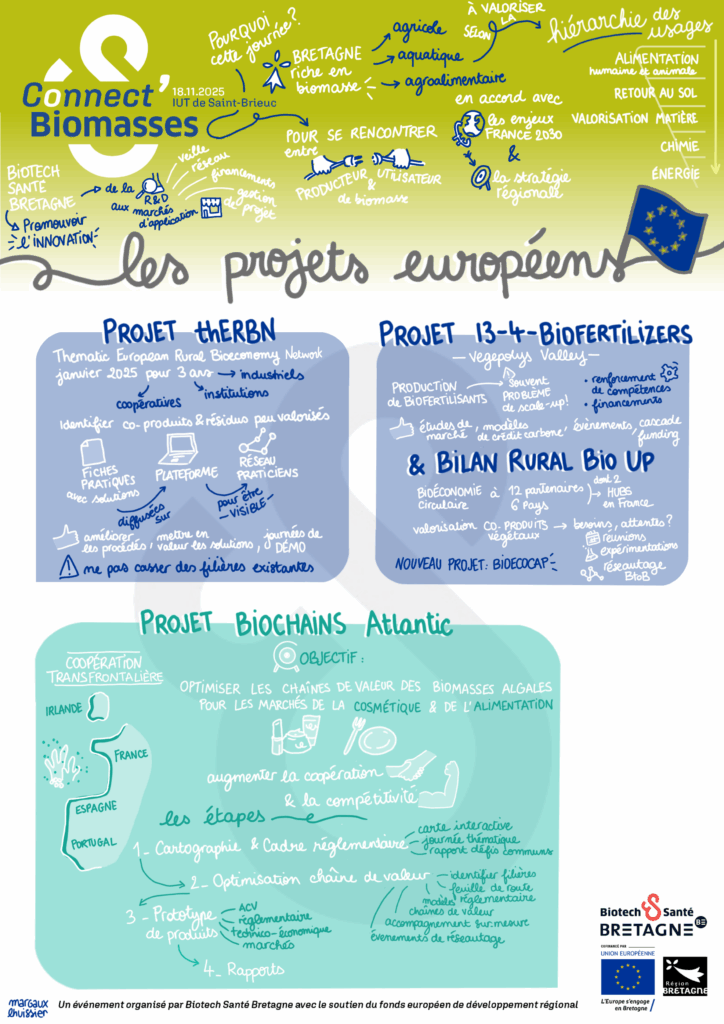 Connect'
Biomasses
18.11.2025
IUT de Saint-Brieuc
POURQUOI
cette journée?
BRETAGNE
riche en
biomasse
agricole
aquatique
agroalimentaire
À VALORISER
SELON
LA
hiérarchie des
usages
ALIMENTATION
humaine et animale
RETOUR AU SOL
VALORISATION MATIÈRE
CHIMIE
ÉNERGIE
en accord avec
les enjeux
FRANCE 2030
&
la stratégie
régionale
POUR SE RENCONTRER
entre
PRODUCTEUR & UTILISATEUR
de biomasse
BIOTECH
SANTÉ
BRETAGNE
Promouvoir
l'INNOVATION
de la
R&D
aux marchés
d'application
veille
réseau
financements
gestion
de projet
les projets européens
PROJET thERBN
Thematic European Rural Bioeconomy Network
janvier 2025 pour 3 ans
industriels
coopératives
institutions
Identifier co-produits & résidus peu valorisés
FICHES
PRATIQUES
avec solutions
PLATEFORME
RÉSEAU
PRATICIENS
diffusées
sur
pour être
-VISIBLE-
améliorer
les procédés,
mettre en
valeur les solutions,
journées de
DÉMO
ne pas casser des filières existantes
PROJET 13-4-BIOFERTILIZERS
- Vegepolys Valley -
PRODUCTION
de BIOFERTILISANTS
souvent
PROBLÈME
de scale-up!
• renforcement
de compétences
• financements
études de
marché,
modèles
de crédit carbone,
évènements,
cascade
funding
& BILAN RURAL BIO UP
BIOÉCONOMIE
circulaire
à 12 partenaires
6 Pays
dont 2
HUBS
en France
valorisation CO-PRODUITS
végétaux
besoins, attentes?
réunions
expérimentations
réseautage
BtoB
NOUVEAU PROJET: BIOECOCAP
PROJET BIOCHAINS Atlantic
COOPÉRATION
TRANSFRONTALIÈRE
IRLANDE
FRANCE
ESPAGNE
PORTUGAL
OBJECTIF :
OPTIMISER LES CHAÎNES DE VALEUR DES BIOMASSES ALGALES
POUR LES MARCHÉS DE LA COSMÉTIQUE & DE L'ALIMENTATION
augmenter la coopération
& la compétitivité
les étapes
1_ Cartographie & Cadre réglementaire
carte interactive
journée thématique
rapport défis communs
2_ Optimisation chaîne de valeur
identifier filières
feuille de route
réglementaire
modèles
chaînes de valeur
accompagnement sur-mesure
évenements de réseautage
3 - Prototype
de produits
ACV
réglementaire
technico-économique
marchés
4_ Rapports
Biotech Santé
BRETAGNE
COFINANCÉ PAR
UNION EUROPÉENNE
L'Europe s'engage
en Bretagne
Région
BRETAGNE
margaux
lhuissier
Un événement organisé par Biotech Santé Bretagne avec le soutien du fonds européen de développement régional